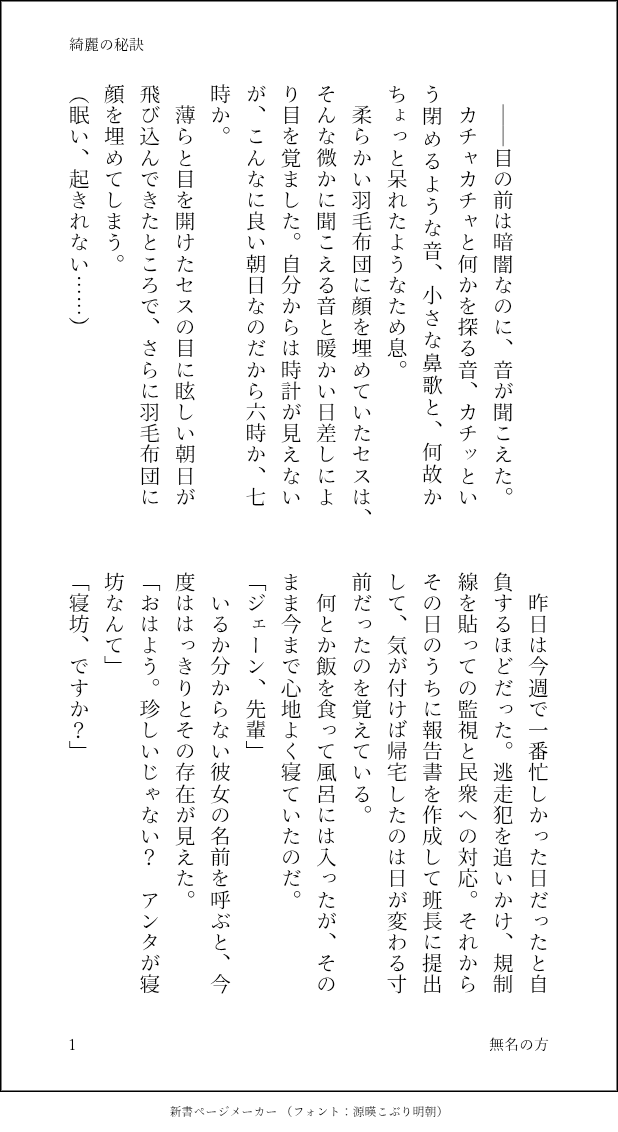 綺麗の秘訣
――目の前は暗闇なのに、音が聞こえた。
カチャカチャと何かを探る音、カチッとい
う閉めるような音、小さな鼻歌と、何故か
ちょっと呆れたようなため息。
柔らかい羽毛布団に顔を埋めていたセスは、
そんな微かに聞こえる音と暖かい日差しによ
り目を覚ました。自分からは時計が見えない
が、こんなに良い朝日なのだから六時か、七
時か。
薄らと目を開けたセスの目に眩しい朝日が
飛び込んできたところで、さらに羽毛布団に
顔を埋めてしまう。
（眠い、起きれない……）
昨日は今週で一番忙しかった日だったと自
負するほどだった。逃走犯を追いかけ、規制
線を貼っての監視と民衆への対応。それから
その日のうちに報告書を作成して班長に提出
して、気が付けば帰宅したのは日が変わる寸
前だったのを覚えている。
何とか飯を食って風呂には入ったが、その
まま今まで心地よく寝ていたのだ。
「ジェーン、先輩」
いるか分からない彼女の名前を呼ぶと、今
度ははっきりとその存在が見えた。
「おはよう。珍しいじゃない？　アンタが寝
坊なんて」
「寝坊、ですか？」
1
無名の方
新書ページメーカー（フォント：源暎こぶり明朝）